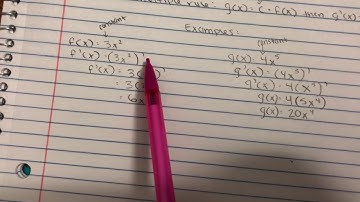 rule: g(x) = c · f(x) then g'
Examples:
constant
f(x) = 3x²
f'(x) = (3x²)'
f'(x) = 3(
= 3(
= 6x
constant
g(x) = 4x⁵
g'(x) = (4x⁵)'
g'(x) = 4(x⁵)'
g(x) = 4(5x⁴)
g(x) = 20x⁴